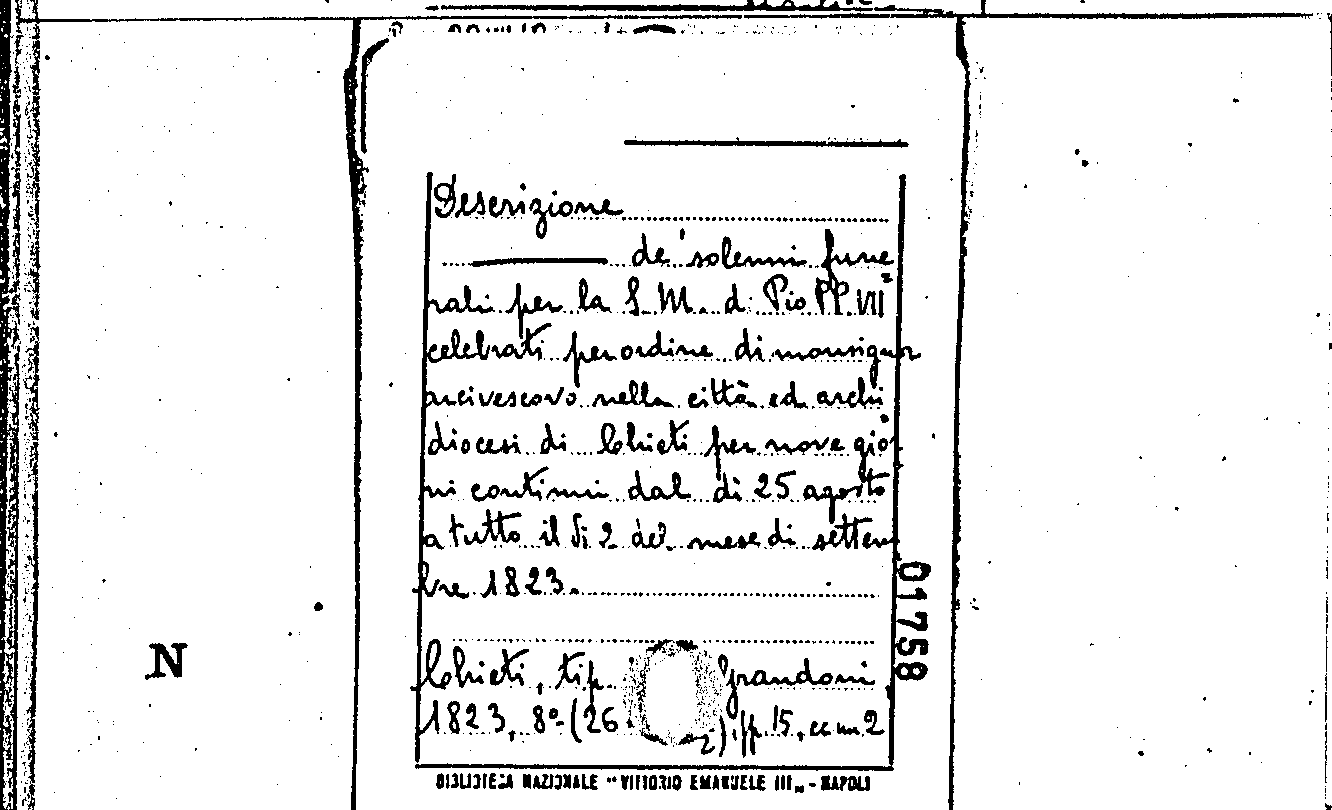 Descrizione
de' solenni fune
rali per la S. M. di Pio PP. VII
celebrati per ordine di monsignor
arcivescovo nella città ed archi
diocesi di Chieti per nove gior
ni continui dal dì 25 agosto
a tutto il dì 2 del mese di settem
bre 1823.
Chieti, tip. Grandoni
1823, 8º (26 2) pp. 15, cc nn 2
01758
N
BIBLIOTECA NAZIONALE "VITTORIO EMANUELE III" - NAPOLI